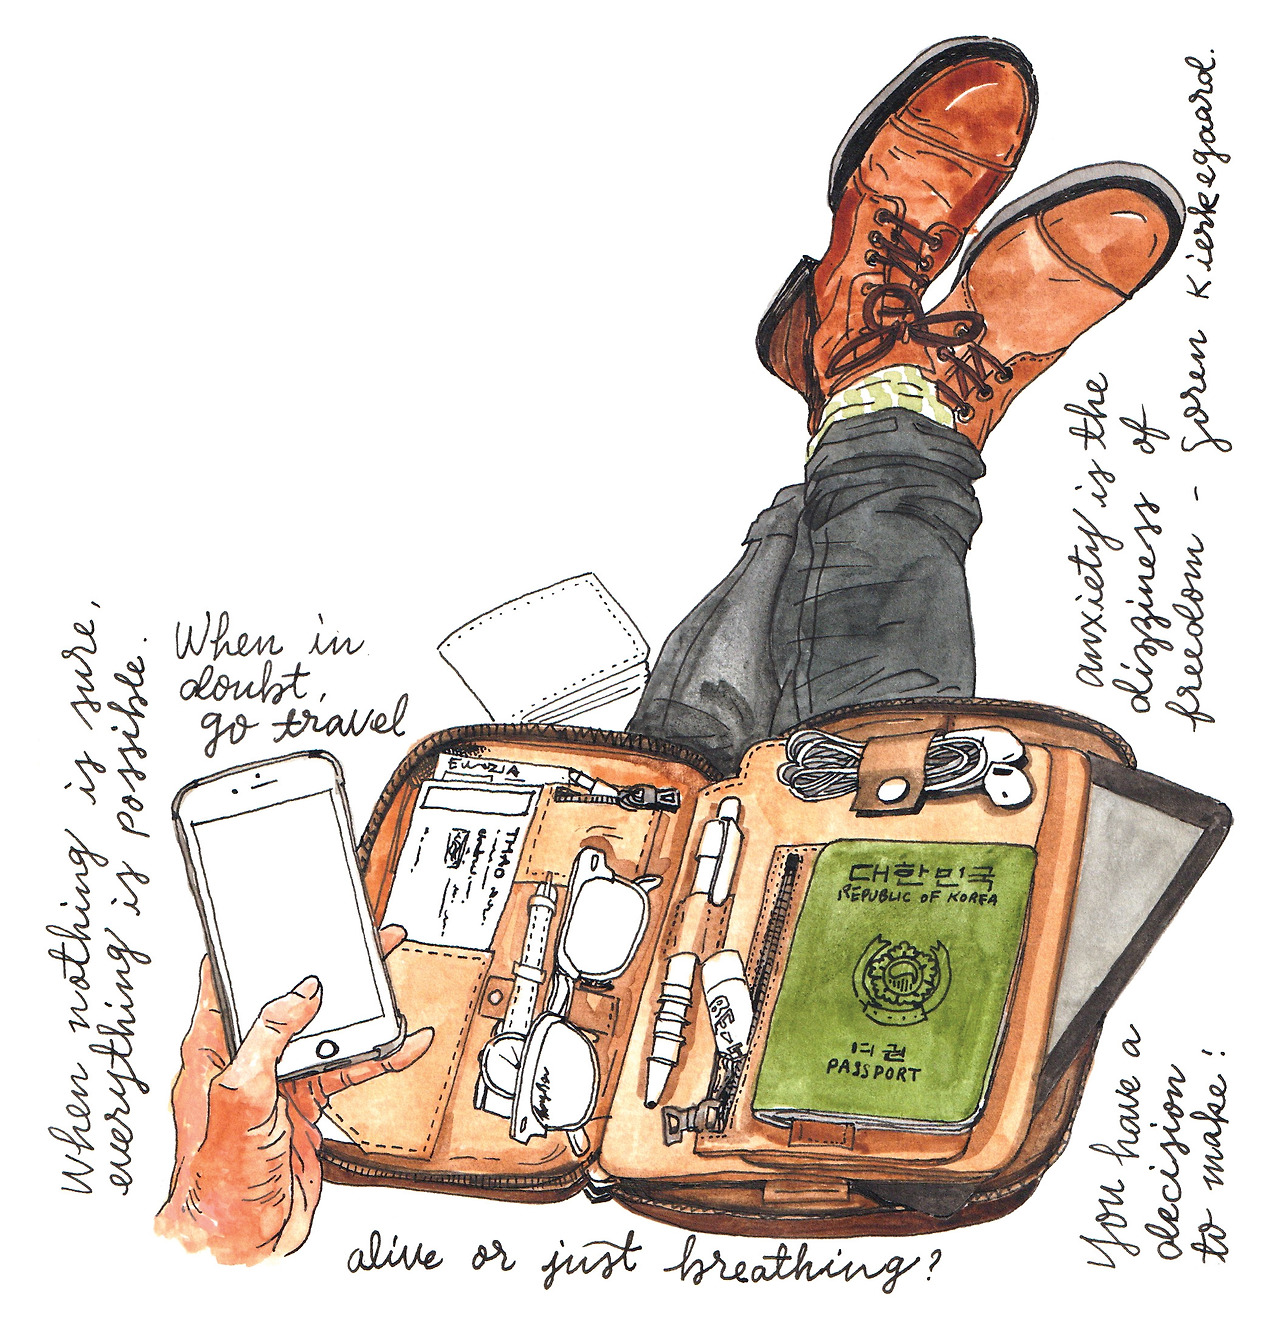 When nothing is sure,
everything is possible.
When in
doubt,
go travel
anxiety is the
dizziness of
freedom - Soren Kierkegaard.
대한민국
REPUBLIC OF KOREA
여권
PASSPORT
You have a
decision
to make!
alive or just breathing?